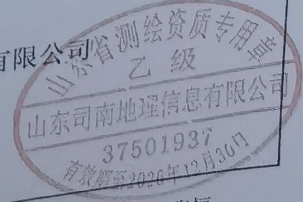 有限公司
山东省测绘资质专用章
乙级
山东司南地理信息有限公司
37501937
有效期至2026年12月30日